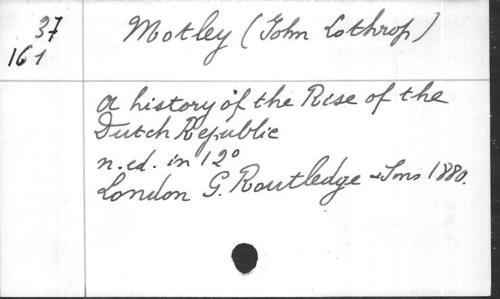 37
161
Motley (John Lothrop)
A history of the Rise of the
Dutch Republic
n.ed. in 12°
London G. Routledge & Sons 1880.